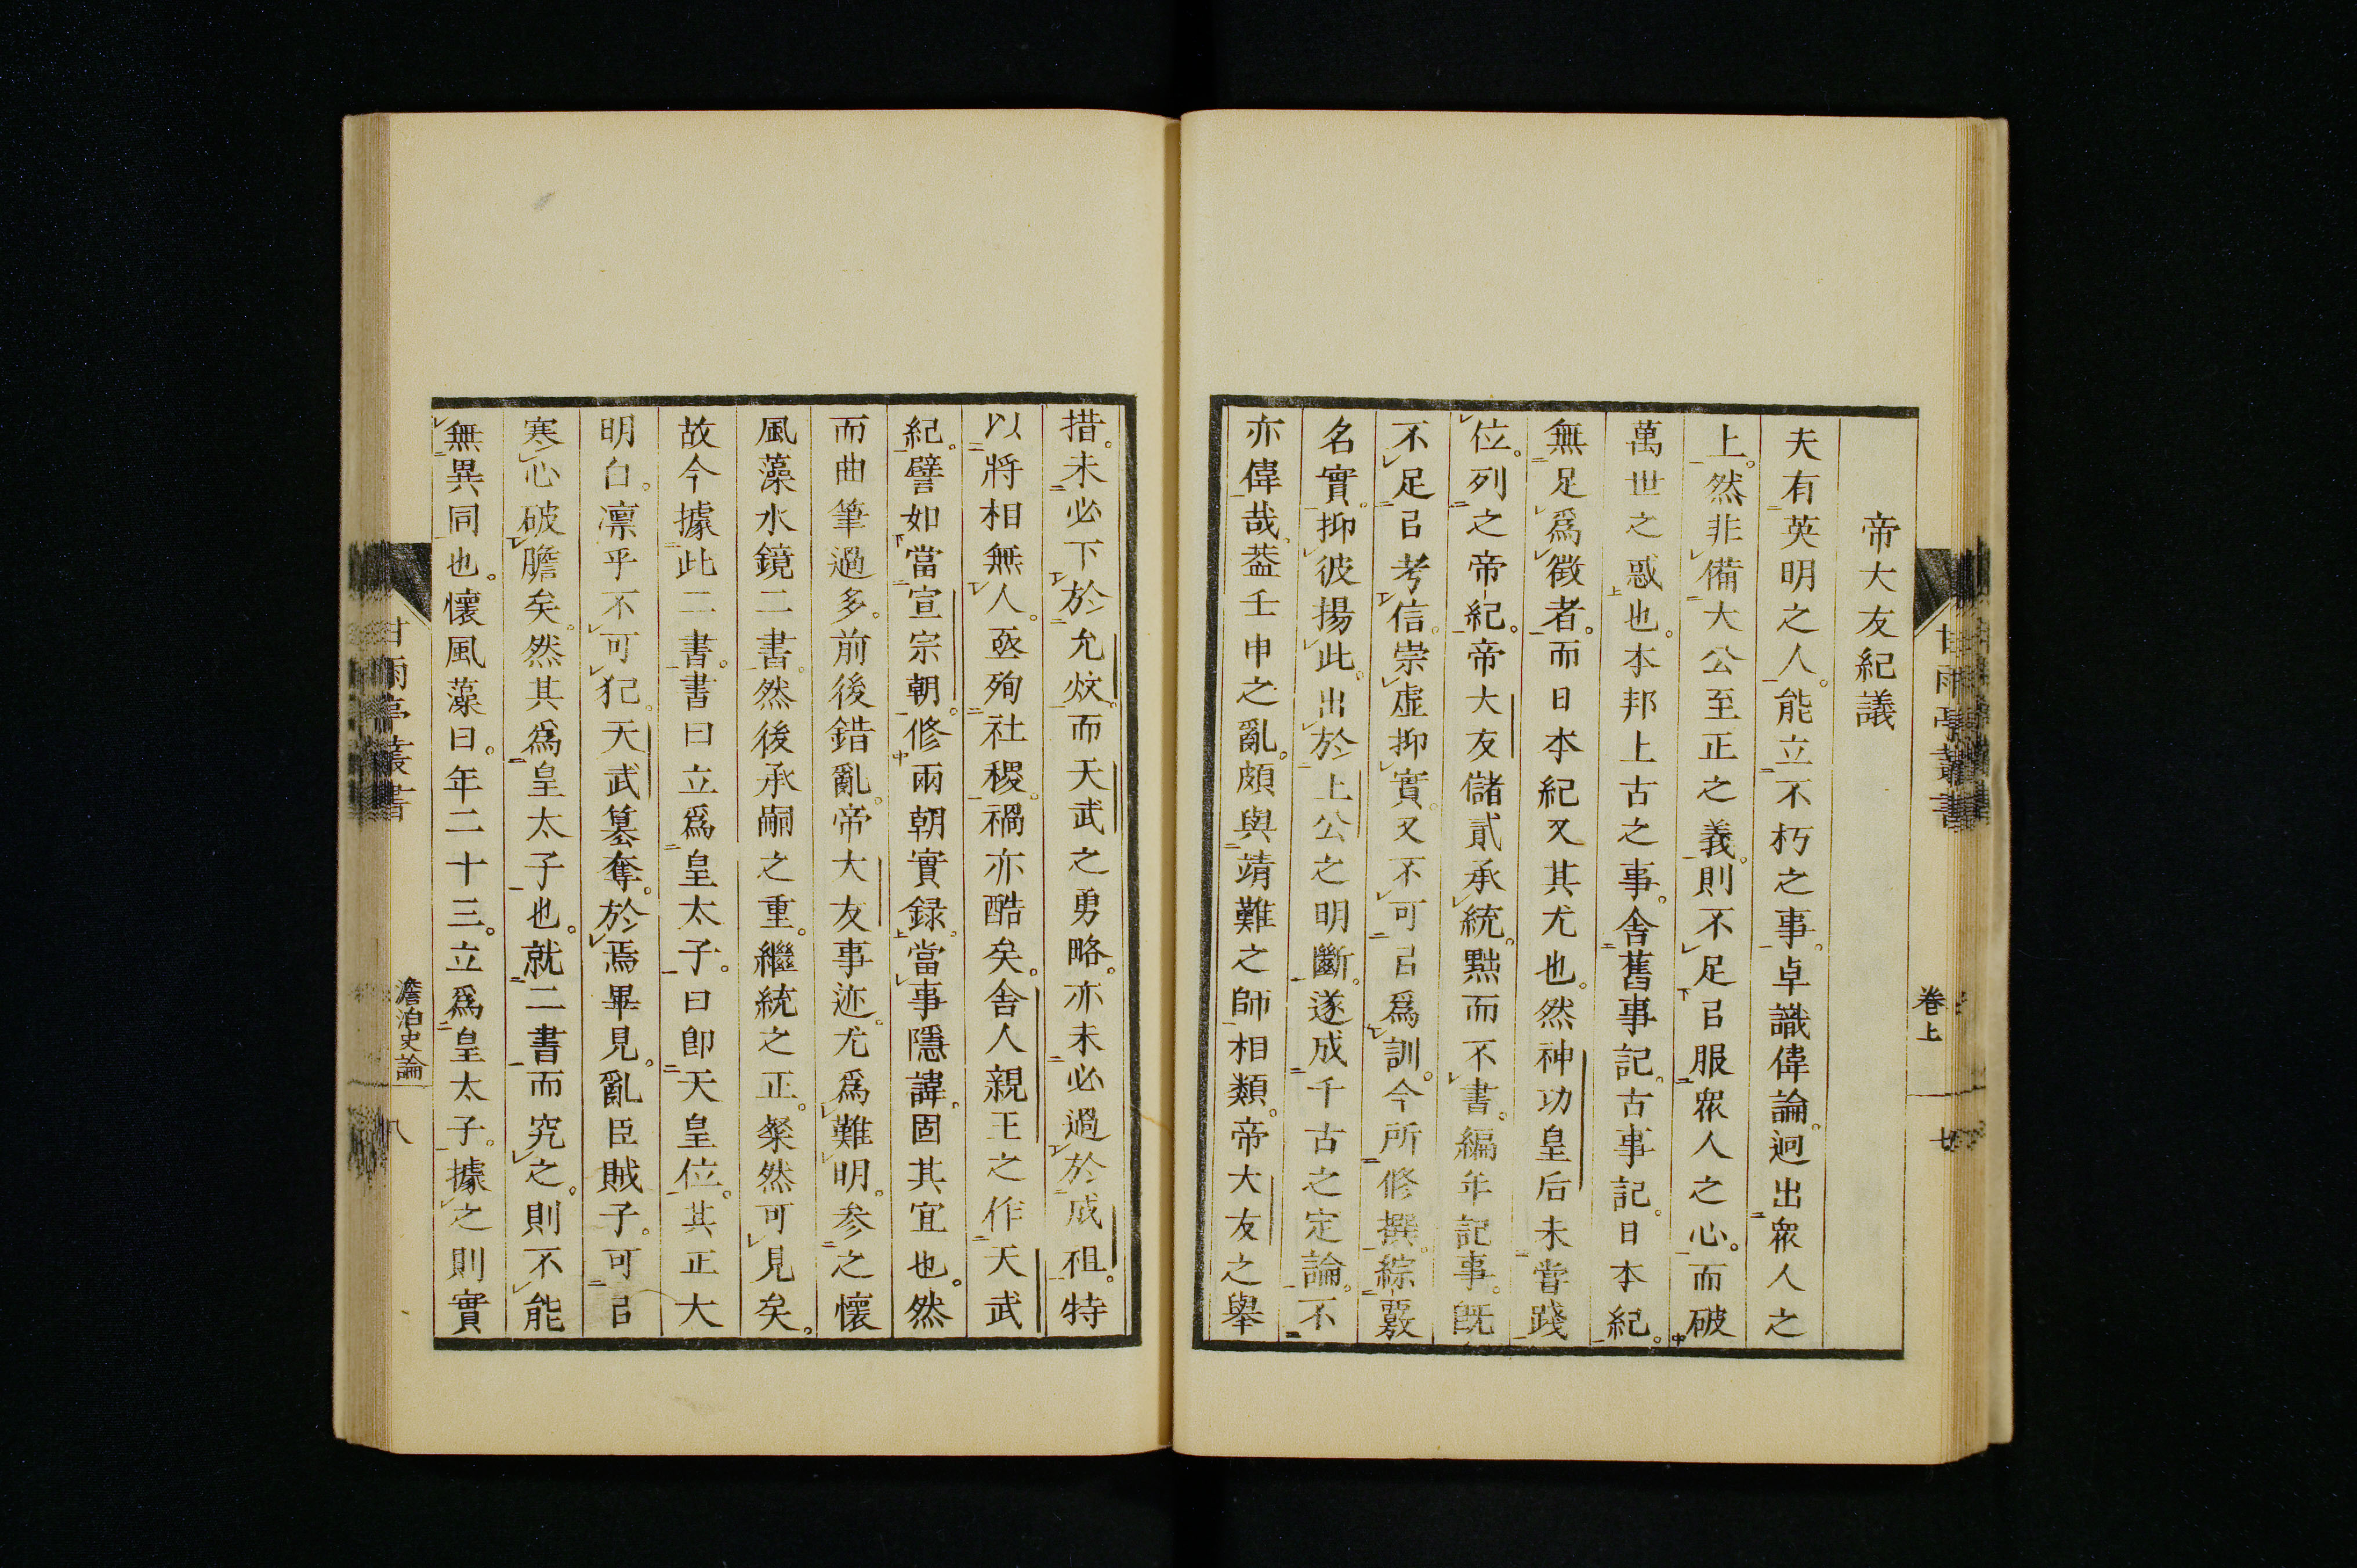 甘雨亭叢書
卷上
七
帝大友紀議
夫有英明之人。能立不朽之事。卓識偉論。迥出衆人之
上。然非備大公至正之義。則不足㠯服衆人之心。而破
萬世之惑也。本邦上古之事。舍舊事記。古事記。日本紀。
無足爲徴者。而日本紀又其尤也。然神功皇后未嘗踐
位。列之帝紀。帝大友儲貳承統。黜而不書。編年記事。既
不足㠯考信。崇虛抑實。又不可㠯爲訓。今所修撰。綜覈
名實。抑彼揚此。出於上公之明斷。遂成千古之定論。不
亦偉哉。葢壬申之亂。頗與靖難之師相類。帝大友之擧
措。未必下於允炆。而天武之勇略。亦未必過於成祖。特
以將相無人。亟殉社稷。禍亦酷矣。舍人親王之作天武
紀。譬如當宣宗朝。修兩朝實録。當事隱諱。固其宜也。然
而曲筆過多。前後錯亂。帝大友事迹。尤爲難明。参之懷
風藻水鏡二書。然後承嗣之重。繼統之正。粲然可見矣。
故今據此二書。書曰立爲皇太子。曰卽天皇位。其正大
明白。凛乎不可犯。天武簒奪。於焉畢見。亂臣賊子。可㠯
寒心破膽矣。然其爲皇太子也。就二書而究之。則不能
無異同也。懷風藻曰。年二十三。立爲皇太子。據之則實
甘雨亭叢書
澹泊史論
八